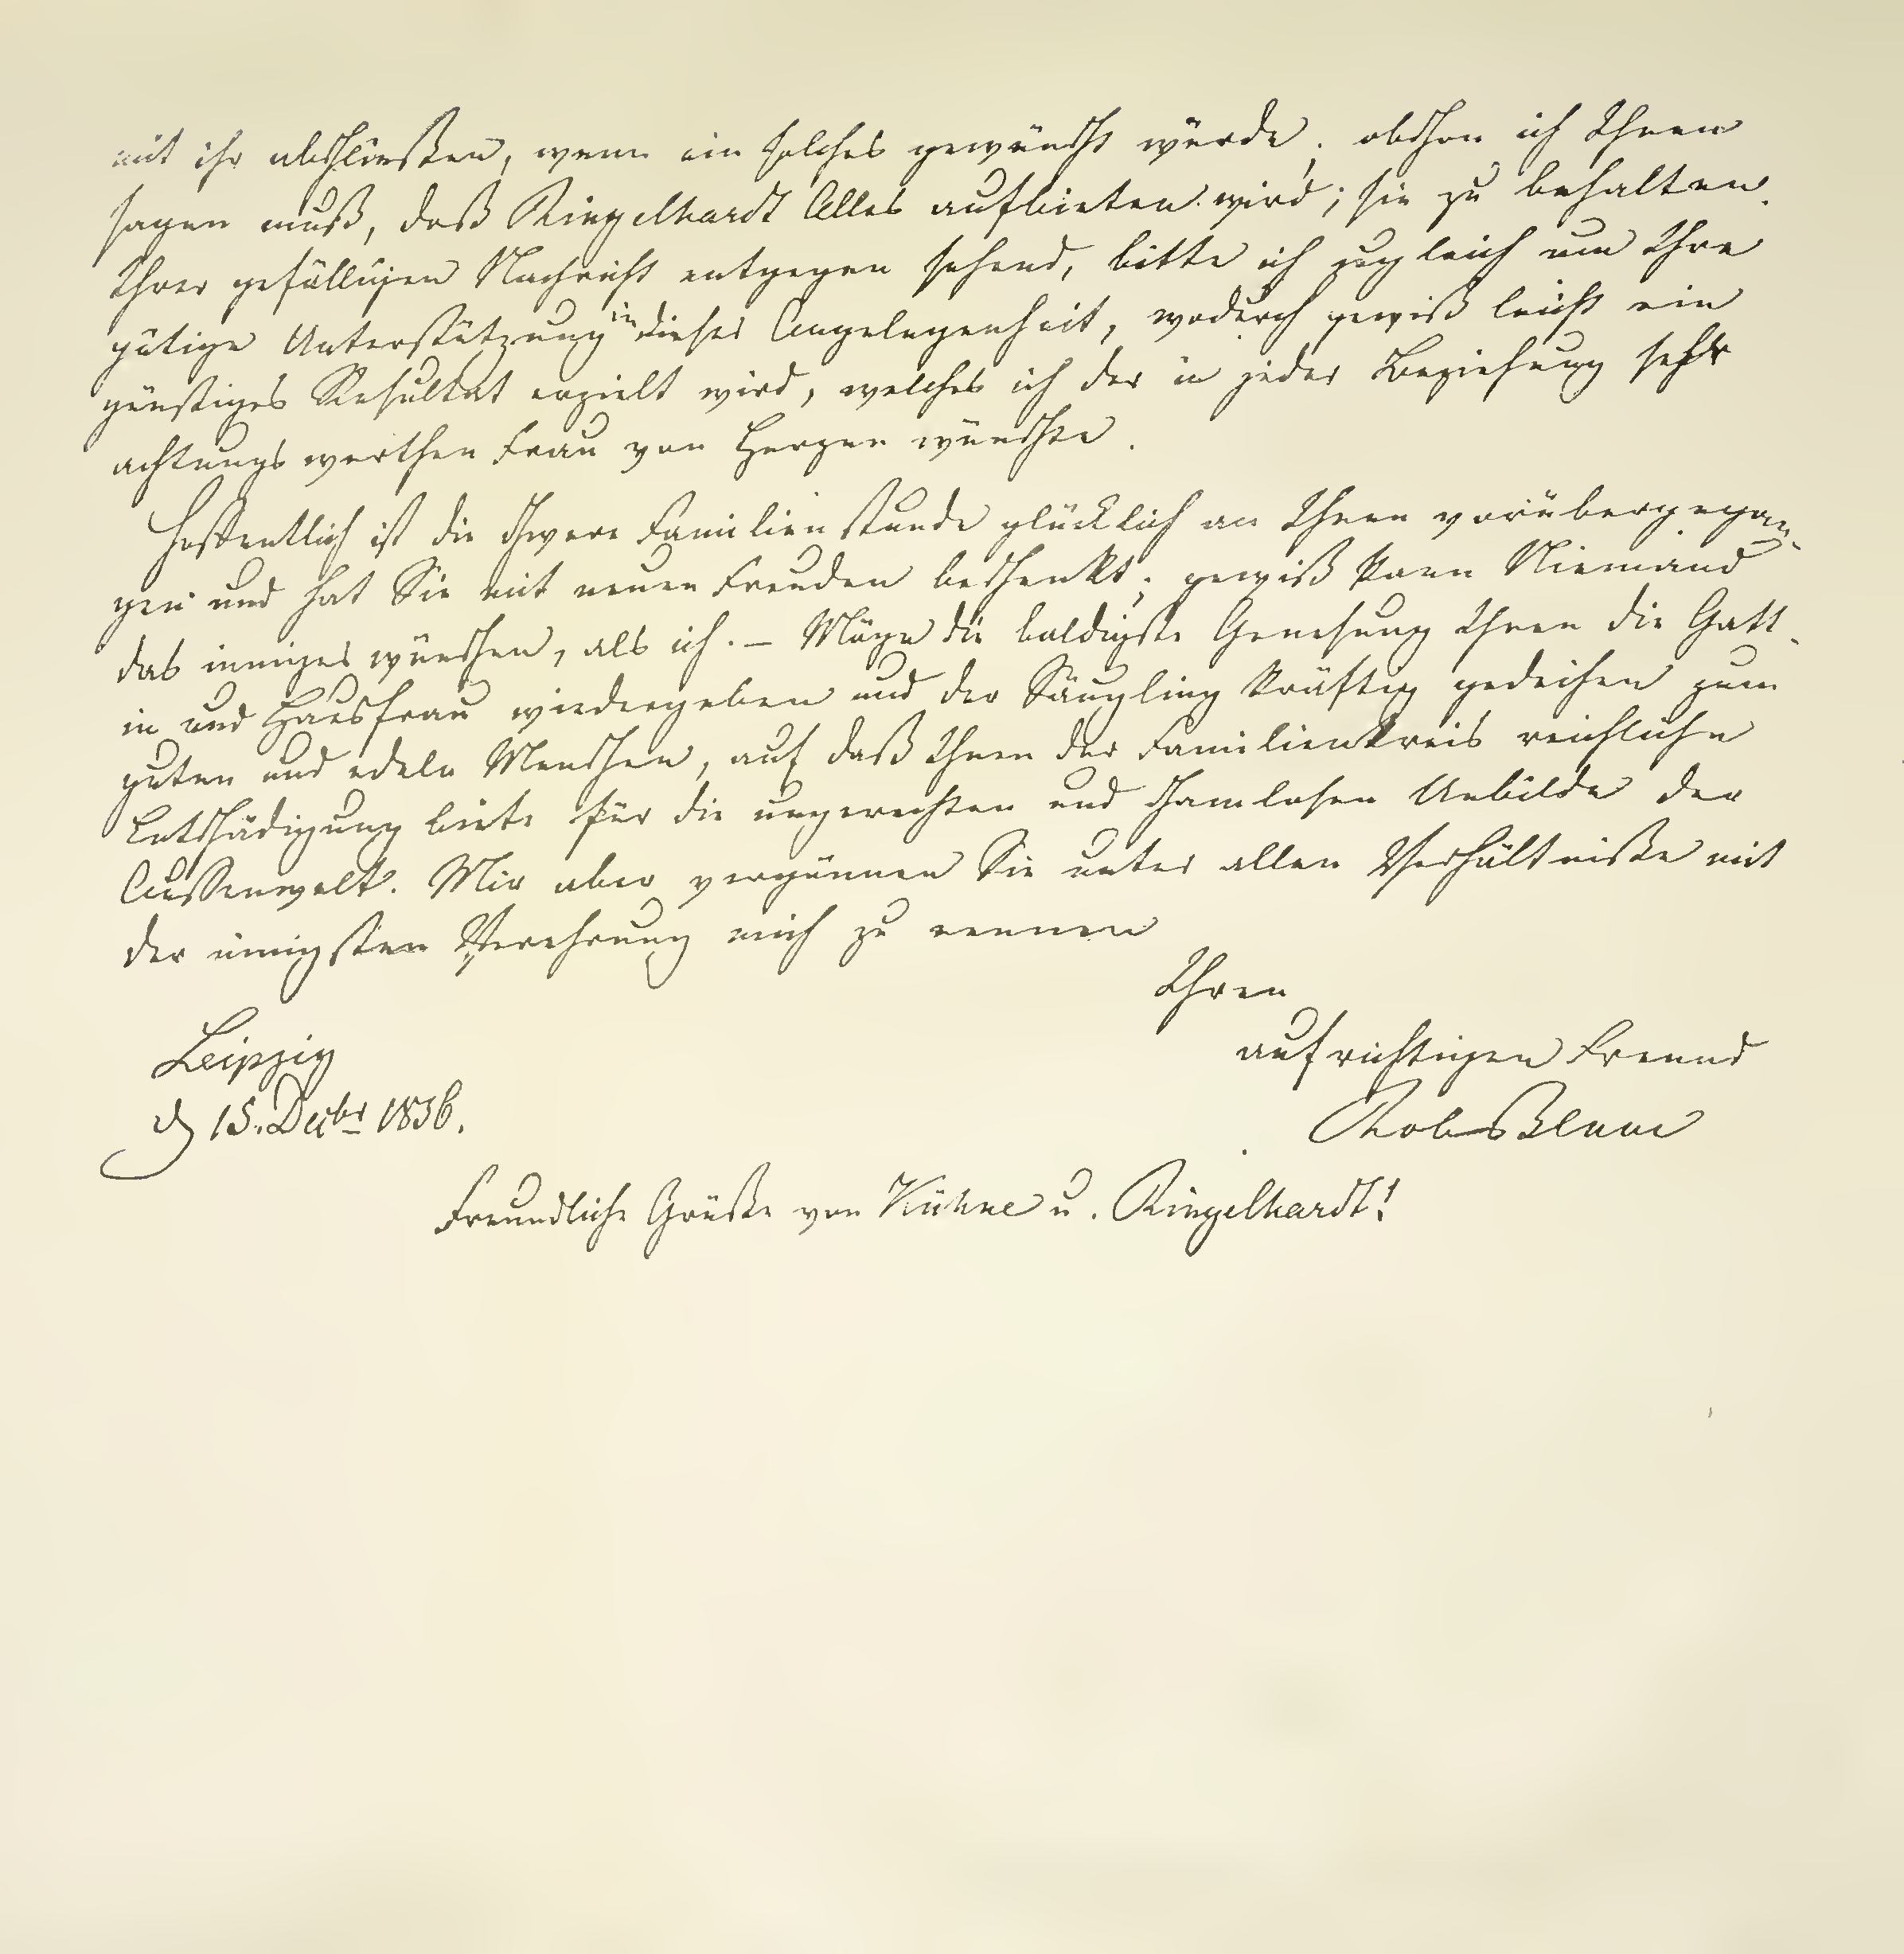 mit ihr abschließen, wenn ein solches gewünscht würde; obschon ich Ihnen
sagen muß, daß Ringelhardt Alles aufbieten wird, sie zu behalten.
Ihrer gefälligen Nachricht entgegen sehend, bitte ich zugleich um Ihre
gütige Unterstützung in dieser Angelegenheit, wodurch gewiß leicht ein
günstiges Resultat erzielt wird, welches ich der in jeder Beziehung sehr
achtungswerthen Frau von Herzen wünschte.
Hoffentlich ist die schwere Familienstunde glücklich an Ihnen vorübergegan-
gen und hat Sie mit neuen Freuden beschenkt; gewiß kann Niemand
das inniger wünschen, als ich. – Möge die baldigste Genesung Ihnen die Gatt-
in und Hausfrau wiedergeben und der Säugling kräftig gedeihen zum
guten und edeln Menschen, auf daß Ihnen der Familienkreis reichliche
Entschädigung biete für die ungerechten und schamlosen Unbilde der
Aussenwelt. Mir aber vergönnen Sie unter allen Verhältniße mit
der innigsten Verehrung mich zu nennen
Ihren
aufrichtigen Freund
Rob Blum
Leipzig
d 15. Decbr 1836.
Freundliche Grüße von Kühne u. Ringelhardt!